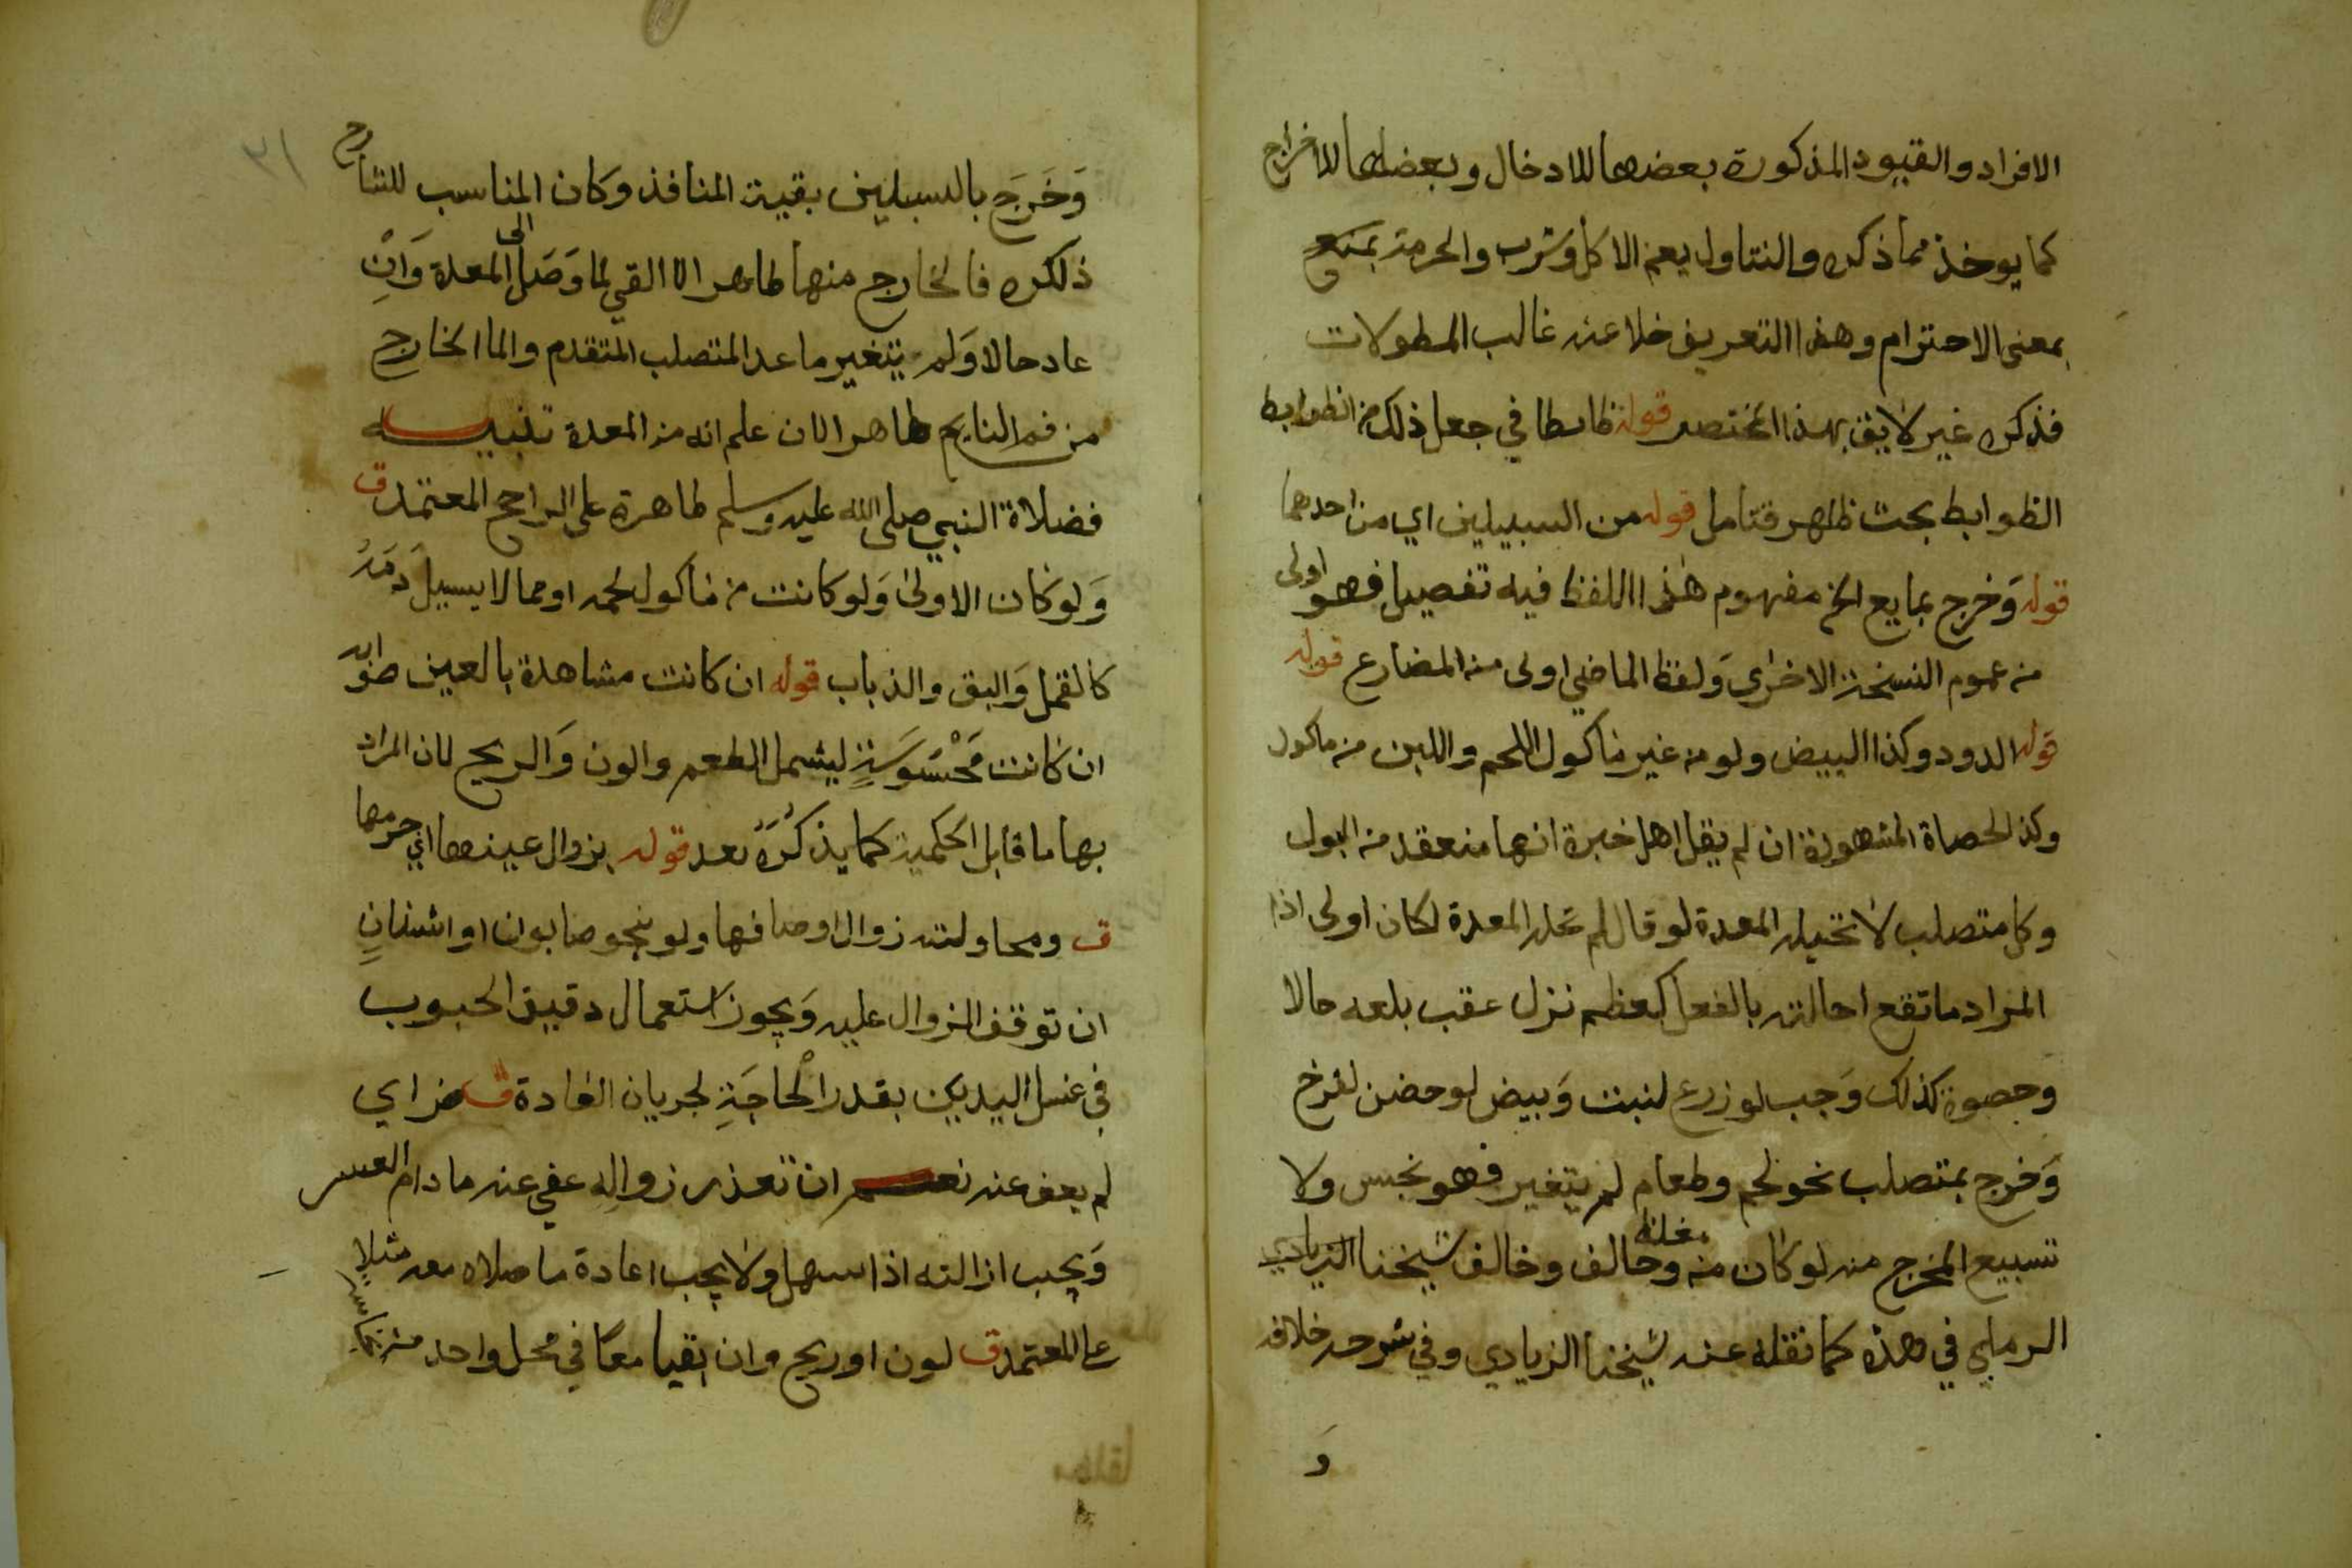 الافراد والقيود المذكورة بعضها للادخال وبعضها للاخراج
كما يوخذ مما ذكره والتناول يعم الاكل وشرب والحرمة بمنع
بمعنى الاحترام وهذا التعريف خلا عنه غالب المطولات
فذكره غير لايق بهذا المختصر قوله ظابطا في جعل ذلك من الظوابط
الظوابط بحث ظاهر فتامل قوله من السبيلين اي من احدهما
قوله وَخرج بمايع الخ مفهوم هذا اللفظ فيه تفصيل فهو اولى
من عموم النسخة الاخرى وَلفظ الماضي اولى من المضارع قوله
قوله الدود وكذا البيض ولو من غير ماكول اللحم واللبن من ماكول
وكذا لحصاة المشهورة ان لم يقل اهل خبرة انها منعقد من البول
وكل متصلب لا تحيله المعدة لو قال لم تحله المعدة لكان اولى اذا
المراد ما تقع احالته بالفعل كعظم نزل عقب بلعه حالا
وحصوة كذلك وَحب لو زرع لنبت وَبيض لو حضن لفرخ
وَخرج بمتصلب نحو لحم وطعام لم يتغير فهو نجس ولا
تسبيع المخرج منه لو كان من مغلظ وخالف وخالف شيخنا الزيادي
الرملي في هذه كما نقله عنه شيخنا الزيادي وفي شرحه خلافه
وَ
٣١
وَخَرَجَ بالسبيلين بقية المنافذ وكان المناسب للشارح
ذلكره فالخارج منها طاهر الا القي لما وَصَل الى المعدة وَانِ
عاد حالا وَلم يتغير ما عدا المتصلب المتقدم والما الخارج
من فم النايم طاهر الا ان علم انه من المعدة تنبيه
فضلاة النبي صلى الله عليه وسلم طاهرة على الراجح المعتمد ق
وَلو كان الاولى وَلو كانت من ماكول لحمه او مما لا يسيل دَمَهُ
كالقمل وَالبق والذباب قوله ان كانت مشاهدة بالعين صوابه
ان كانت مَحْسُوسَةٍ ليشمل الطعم والون وَالريح لان المراد
بها ما قابل الحكمية كما يذكُرَهُ بعد قوله بزوال عينها اي جرمها
ق ومحاولته زوال اوصافها ولو بنحو صابون او اشنانٍ
ان توقف الزوال عليه وَيجوز استعمال دقيق الحبوب
في غسل اليدين بقدر الْحاجَةِ لجريان العادة ق ضر اي
لم يعف عنه نعم ان تعذر زوالهِ عفي عنه ما دام العسر
وَيجب ازالته اذا سهل ولا يجب اعادة ما صلاه معه مثلاٍ
على المعتمد ق لون او ريح وان بقيا معًا في محل واحد من نجاسة